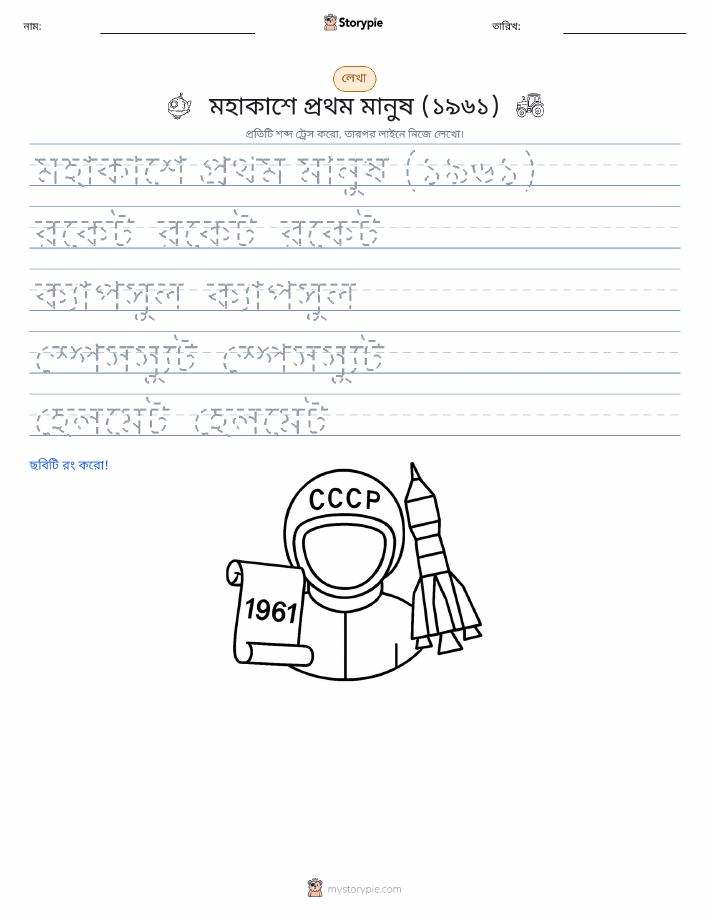 নাম:
Storypie
তারিখ:
লেখা
মহাকাশে প্রথম মানুষ (১৯৬১)
প্রতিটি শব্দ ট্রেস করো, তারপর লাইনে নিজে লেখো।
মহাকাশে প্রথম মানুষ (১৯৬১)
রকেট রকেট রকেট
ক্যাপসুল ক্যাপসুল
স্পেসস্যুট স্পেসস্যুট
হেলমেট হেলমেট
ছবিটি রং করো!
CCCP
1961
mystorypie.com